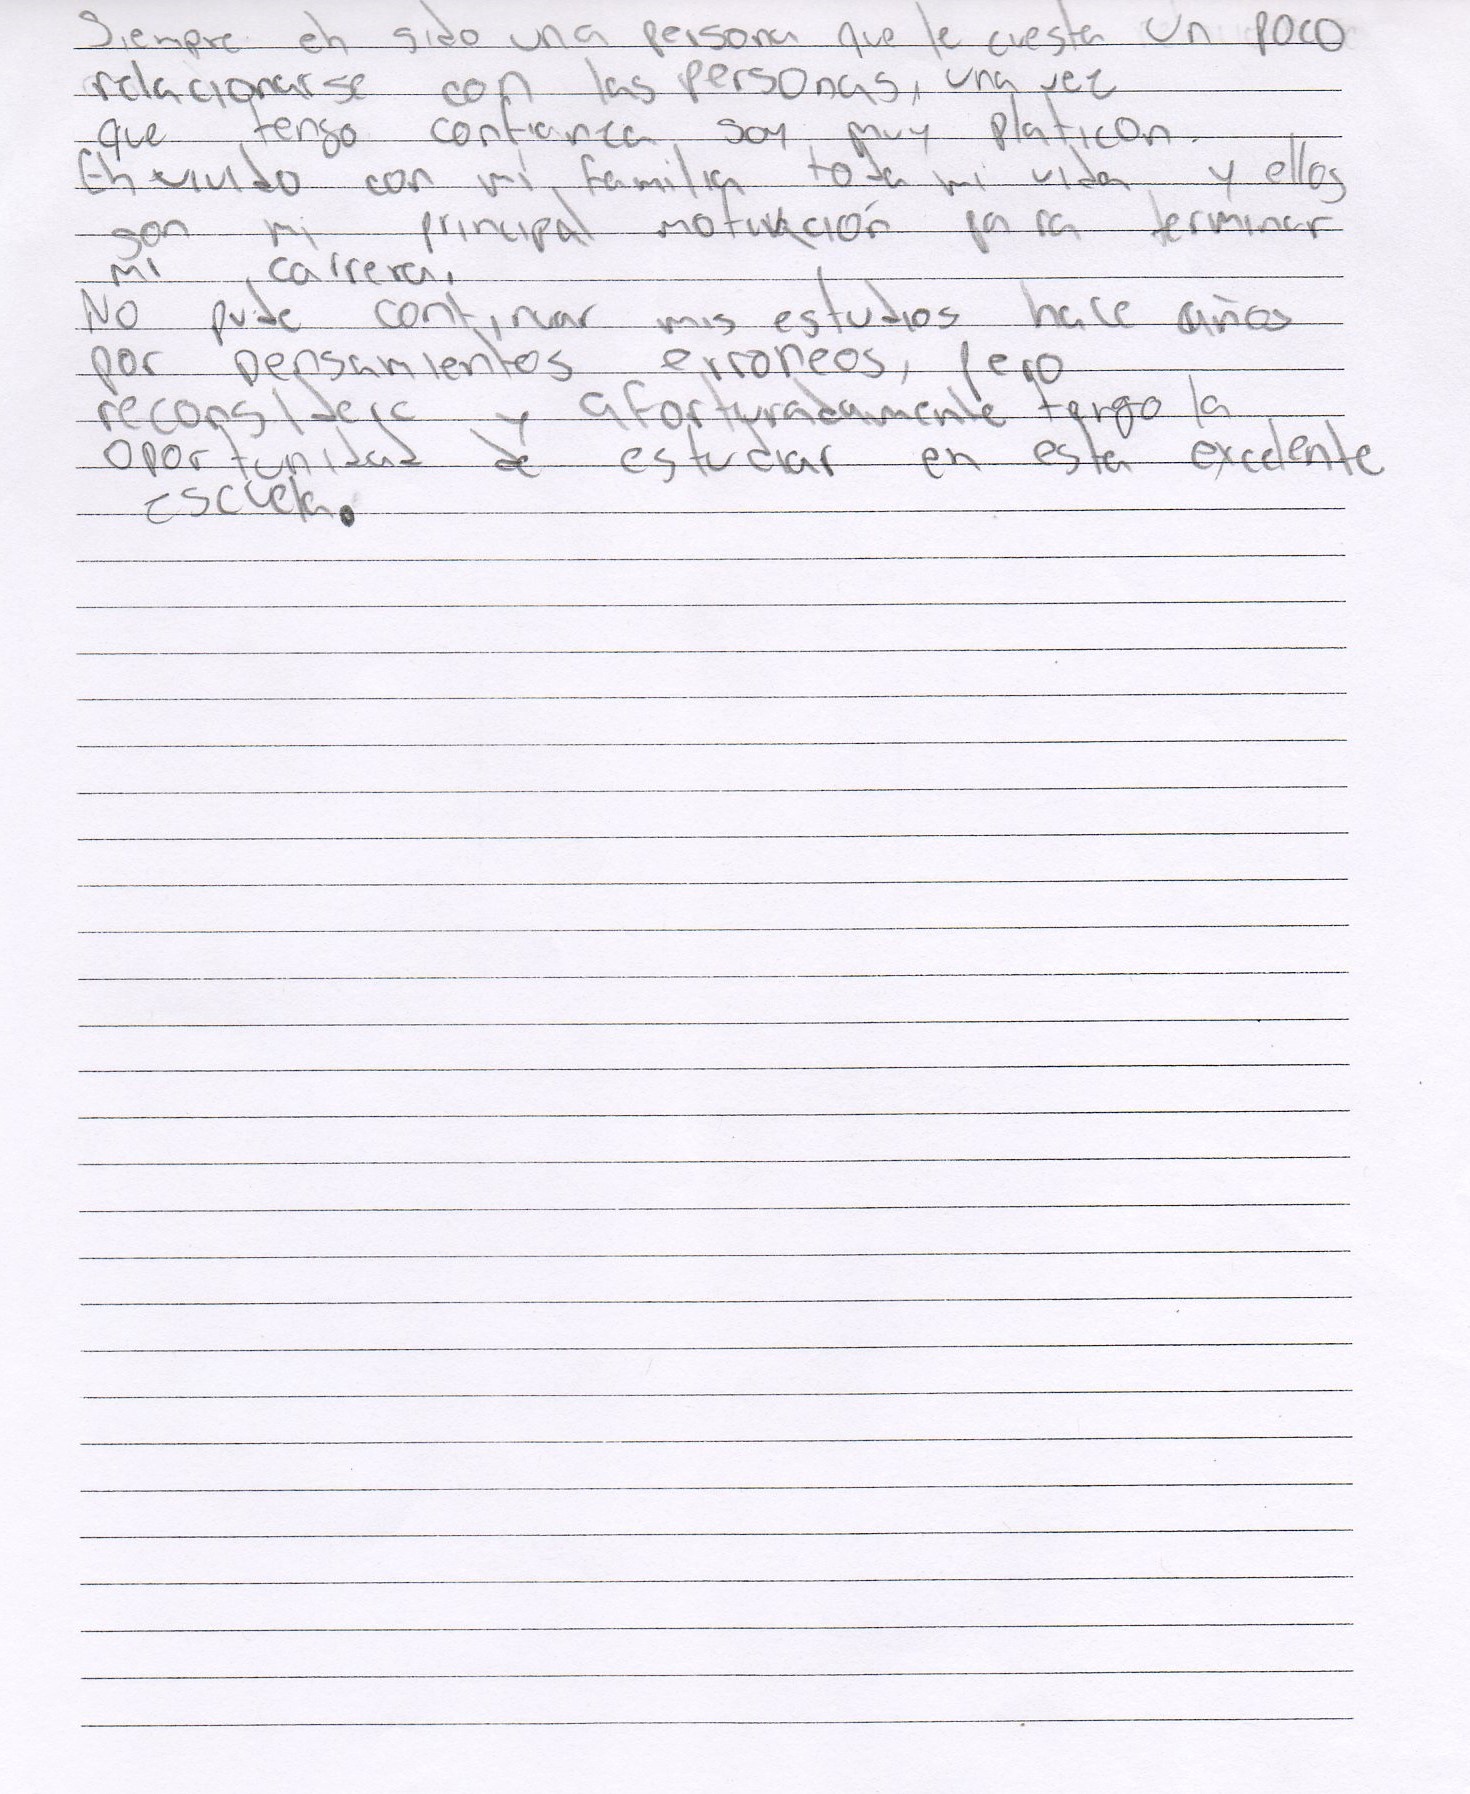 Siempre eh sido una persona que le cuesta un poco
relacionarse con las personas, una vez
que tengo confianza soy muy platicon.
Eh vivido con mi familia toda mi vida y ellos
son mi principal motivación para terminar
mi carrera.
No pude continuar mis estudios hace años
por pensamientos erroneos, pero
reconsidere y afortunadamente tengo la
oportunidad de estudiar en esta excelente
escuela.